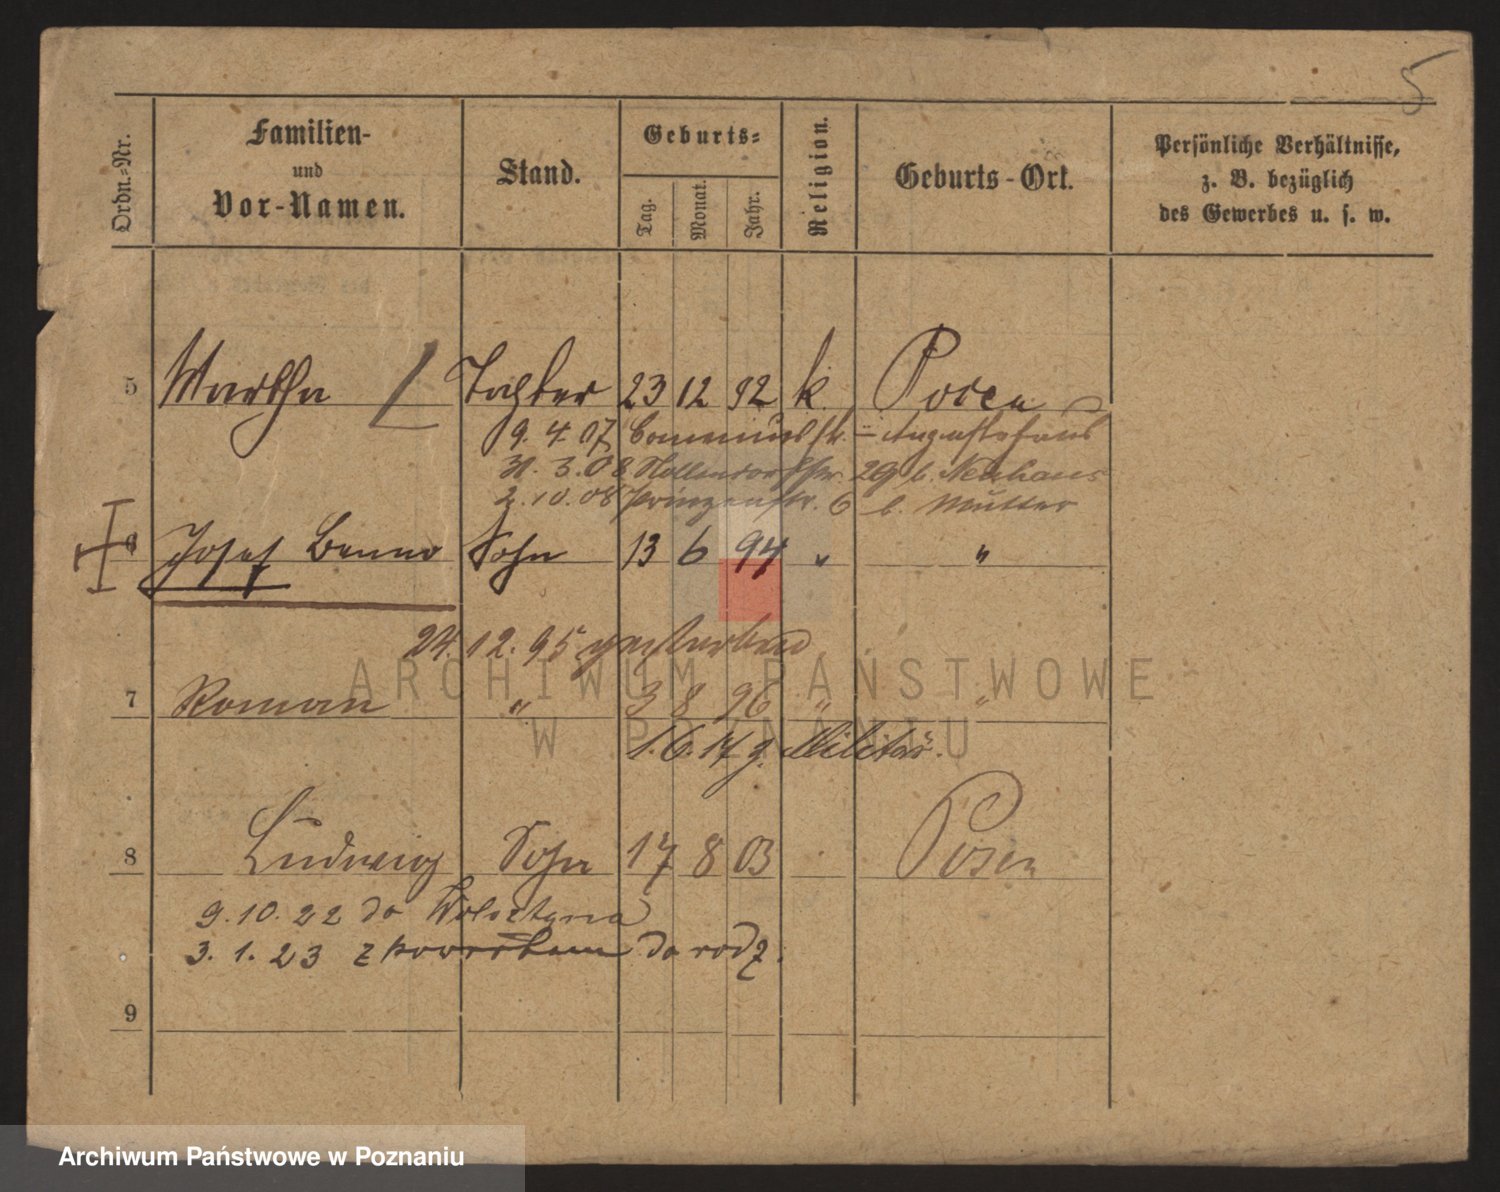 5
Ordn.-Nr.
Familien-
und
Vor-Namen.
Stand.
Geburts-
Tag.
Monat.
Jahr.
Religion.
Geburts-Ort.
Persönliche Verhältnisse,
z. B. bezüglich
des Gewerbes u. s. w.
5 Martha Tochter 23 12 92 k. Posen
9. 4. 07
31. 3. 08 29 b. Neuhaus
2. 10. 08 Prinzenstr. 6 b. Mutter
6 Josef Benno Sohn 13 6 94 " "
24. 12. 95 gestorben
7 Roman " 3 8 96 " "
1. 6. 17 z. Militär.
8 Ludwig Sohn 17 8 03 Posen
9. 10. 22 do Wolsztyna
3. 1. 23 z powrotem do rodz.
9
ARCHIWUM PAŃSTWOWE
W POZNANIU
Archiwum Państwowe w Poznaniu